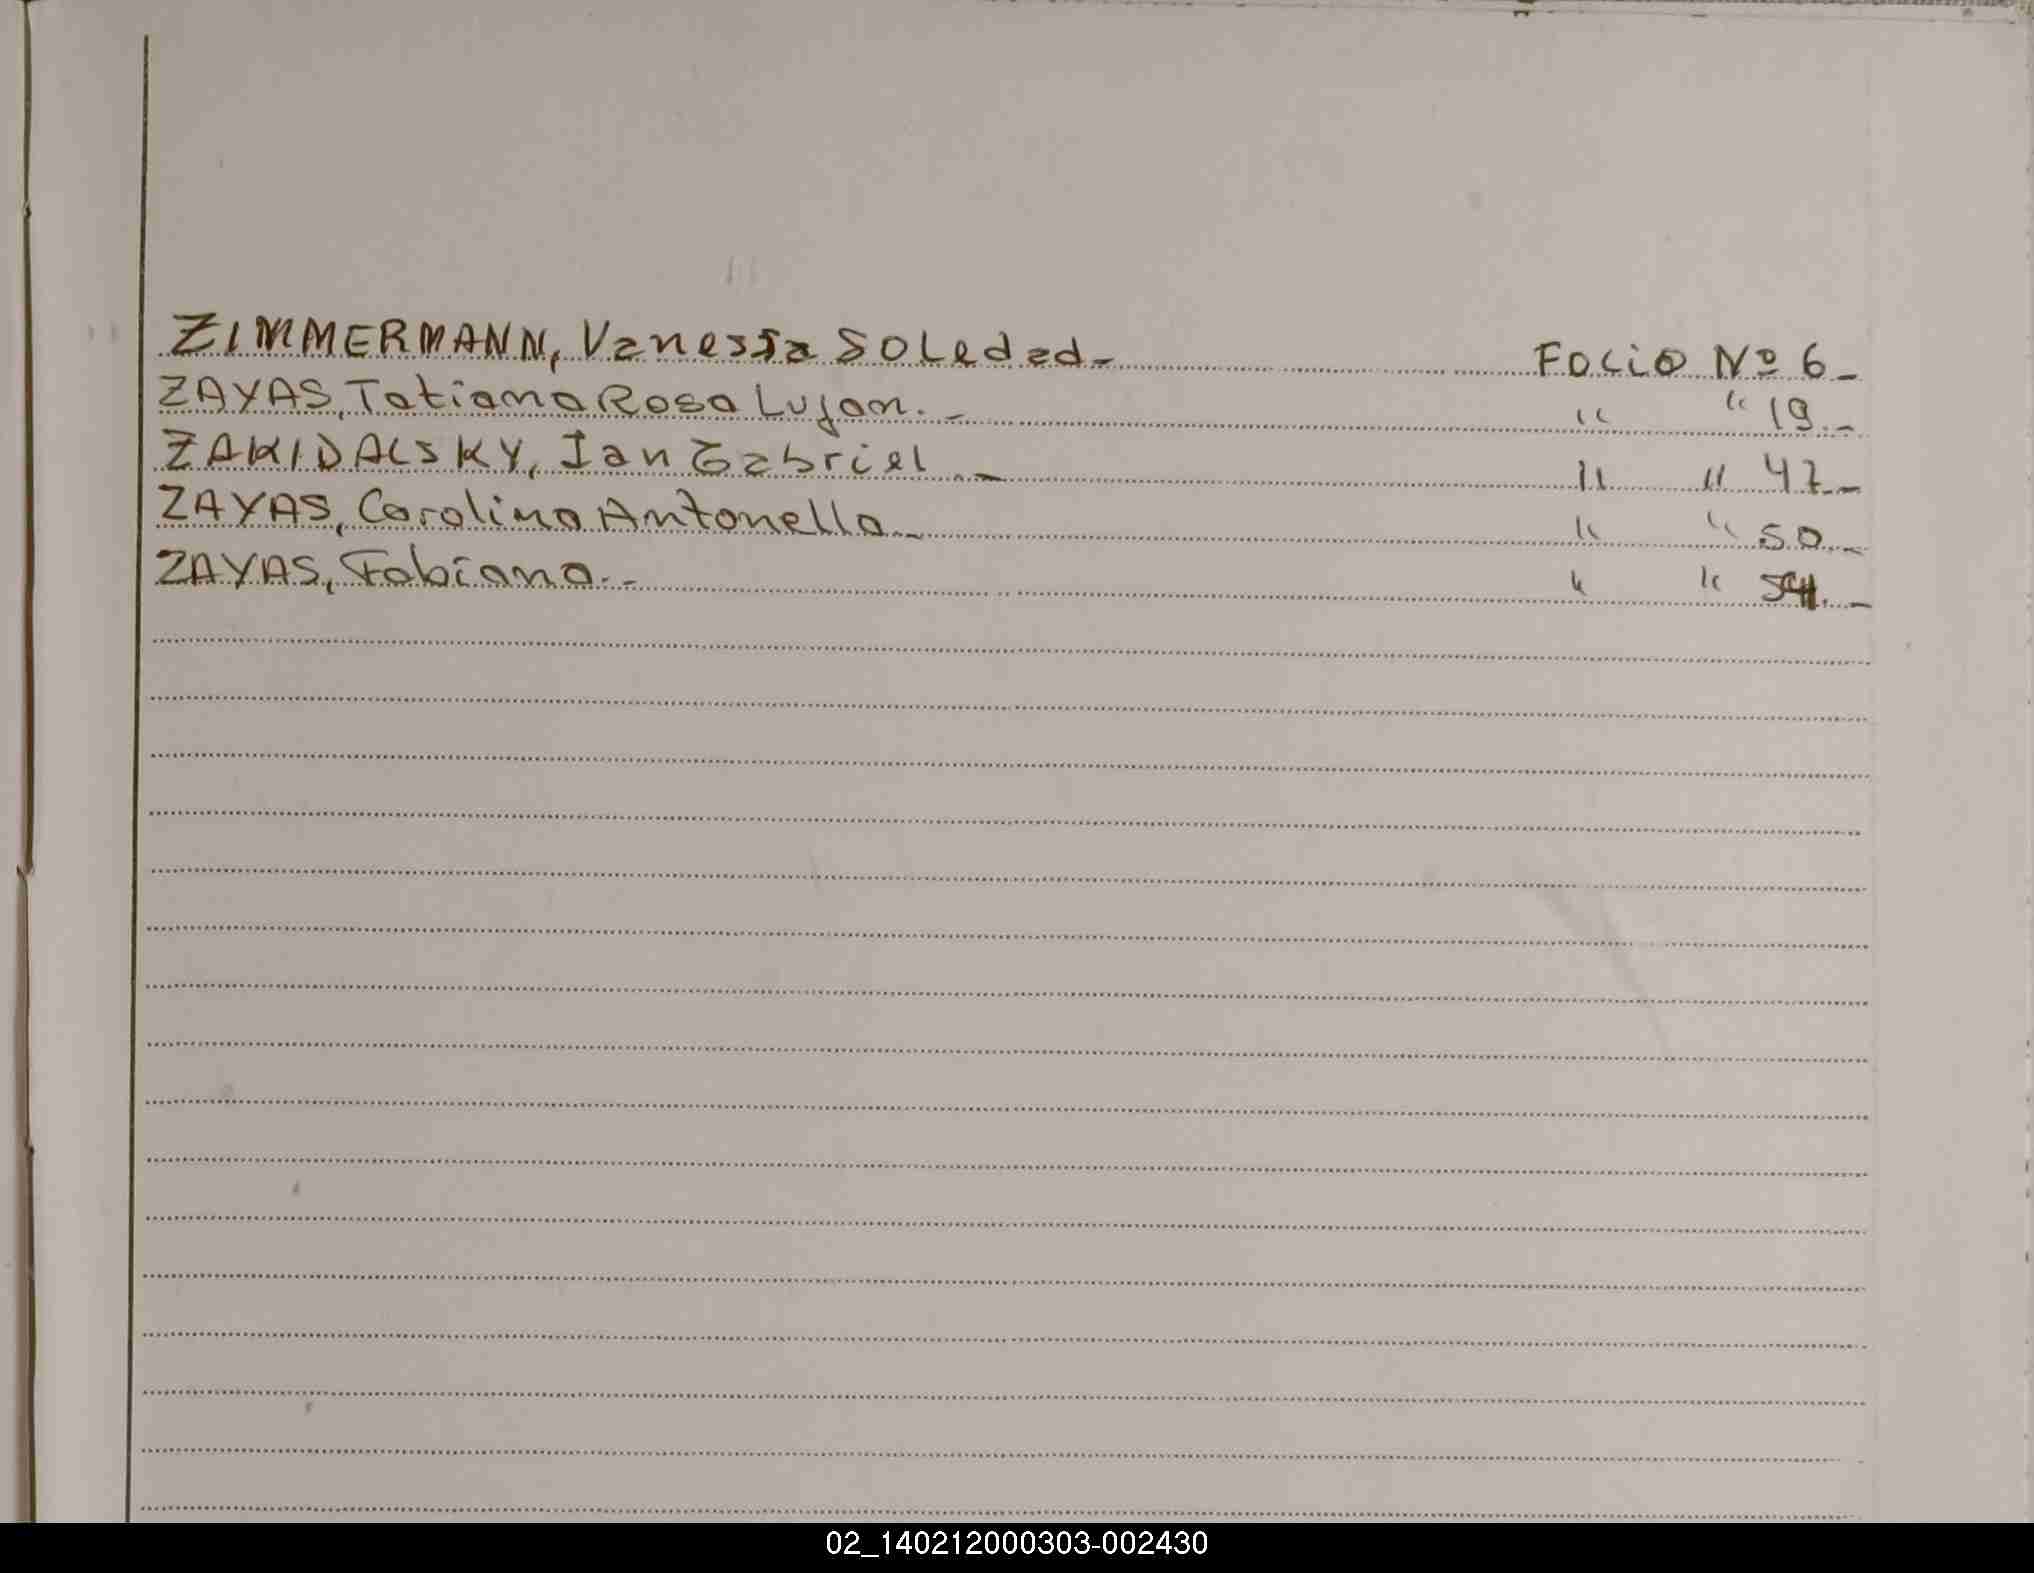 ZIMMERMANN, Vanessa Soledad.- Folio Nº 6.-
ZAYAS, Tatiana Rosa Lujan.- " " 19.-
ZAKIDALSKY, Ian Gabriel.- " " 47.-
ZAYAS, Carolina Antonella.- " " 50.-
ZAYAS, Fabiana.- " " 54.-
02_140212000303-002430